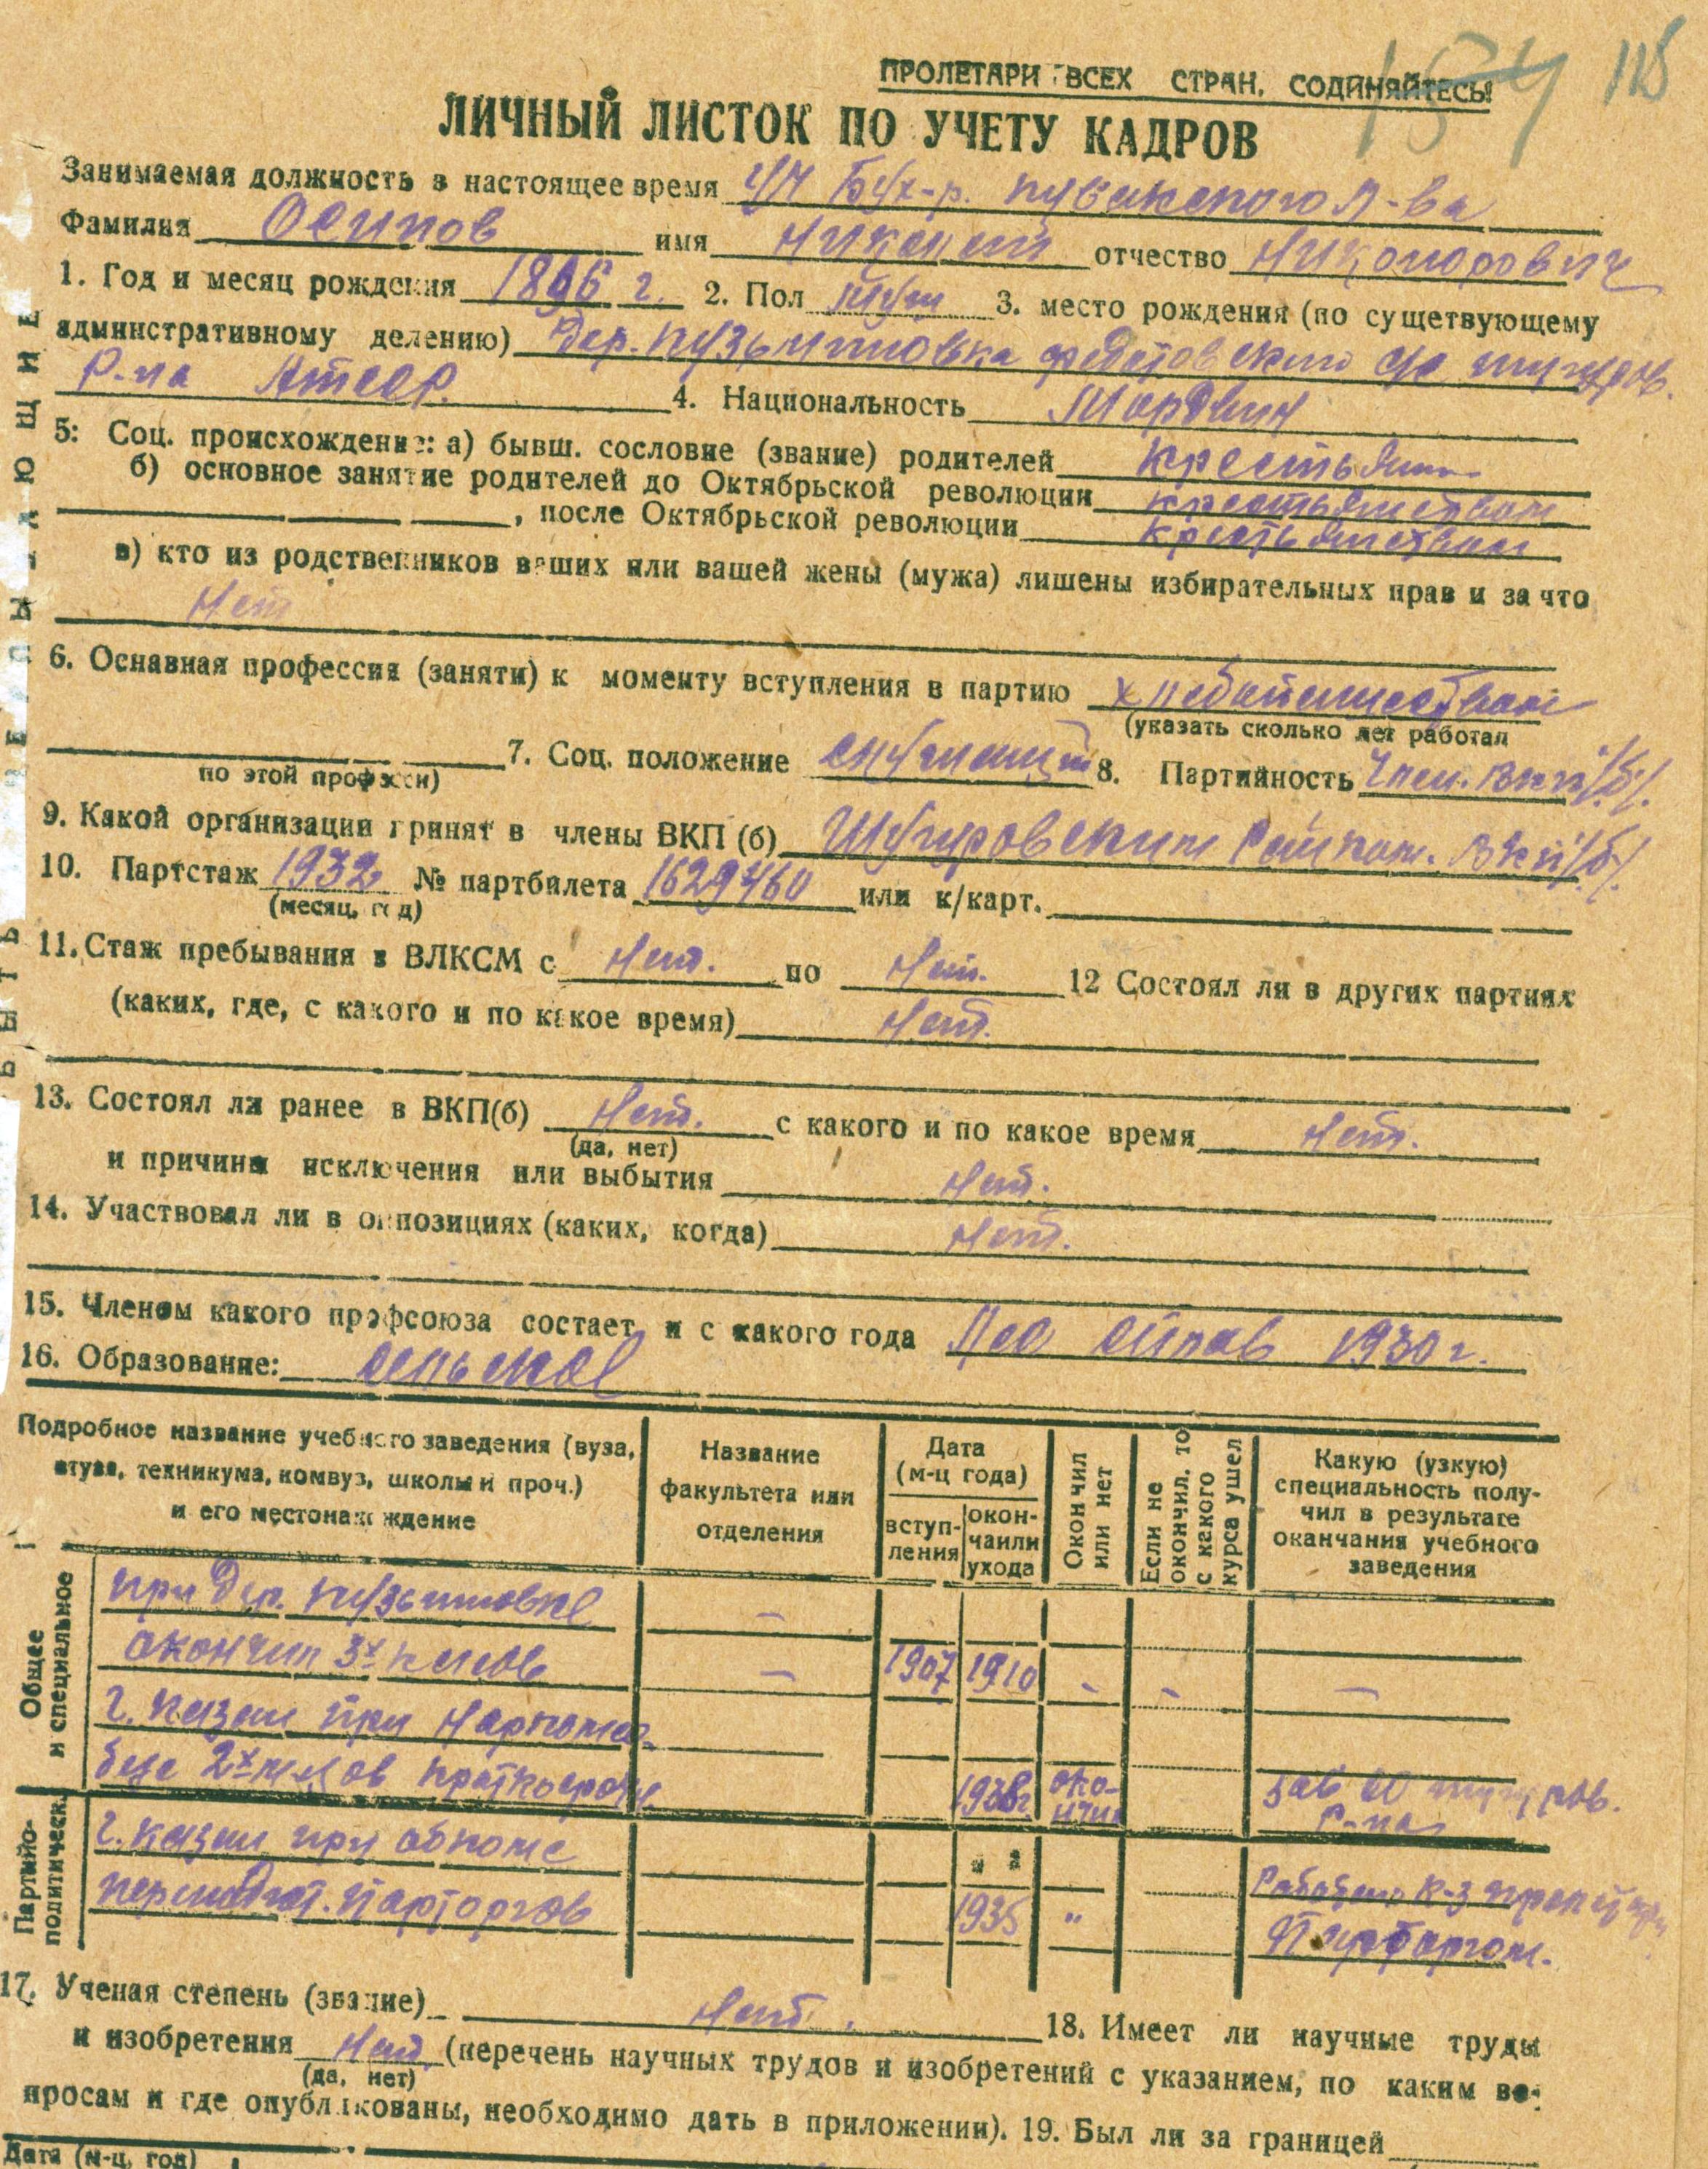 154 118
ПРОЛЕТАРИ ВСЕХ СТРАН, СОДИНЯЙТЕСЬ!
ЛИЧНЫЙ ЛИСТОК ПО УЧЕТУ КАДРОВ
Занимаемая должность в настоящее время
Фамилия Осипов имя отчество Никонорович
1. Год и месяц рождения 1896 г. 2. Пол муж 3. место рождения (по сущетвующему
административному делению) Дер.
Р-на Атсср. 4. Национальность Мордвин
5: Соц. происхождение: а) бывш. сословие (звание) родителей Крестьяни
б) основное занятие родителей до Октябрьской революции крестьянством
, после Октябрьской революции крестьянством
в) кто из родственников ваших или вашей жены (мужа) лишены избирательных прав и за что
Нет
6. Оснавная профессия (заняти) к моменту вступления в партию
(указать сколько лет работал
по этой професси) 7. Соц. положение 8. Партийность Член. ВКП/б/.
9. Какой организации принят в члены ВКП (б) Шугуровским Райком. ВКП/б/.
10. Партстаж 1932 № партбилета 1629460 или к/карт.
(месяц, год)
11. Стаж пребывания в ВЛКСМ с Нет. по Нет. 12 Состоял ли в других партиях
(каких, где, с какого и по какое время) Нет.
13. Состоял ли ранее в ВКП(б) Нет. с какого и по какое время Нет.
(да, нет)
и причины исключения или выбытия Нет.
14. Участвовал ли в оппозициях (каких, когда) Нет.
15. Членом какого профсоюза состает и с какого года 1930 г.
16. Образование:
Подробное название учебного заведения (вуза,
втуза, техникума, комвуз, школы и проч.)
и его местонахождение
Название
факультета или
отделения
Дата
(м-ц года)
вступ-
ления
окон-
чаили
ухода
Окончил
или нет
Если не
окончил, то
с какого
курса ушел
Какую (узкую)
специальность полу-
чил в результате
оканчания учебного
заведения
Общее
и специальное
при Дер.
окончил 3х 1907 1910
г. Казан при
2х 1938г око-
нчил
Р-на
Партийо-
политическ.
г. Казан при обкоме
парторгов 1935 "
Парторгом.
17. Ученая степень (звание) Нет. 18. Имеет ли научные труды
и изобретения Нет. (перечень научных трудов и изобретений с указанием, по каким во-
(да, нет)
просам и где опубликованы, необходимо дать в приложении). 19. Был ли за границей
Дата (м-ц, год)